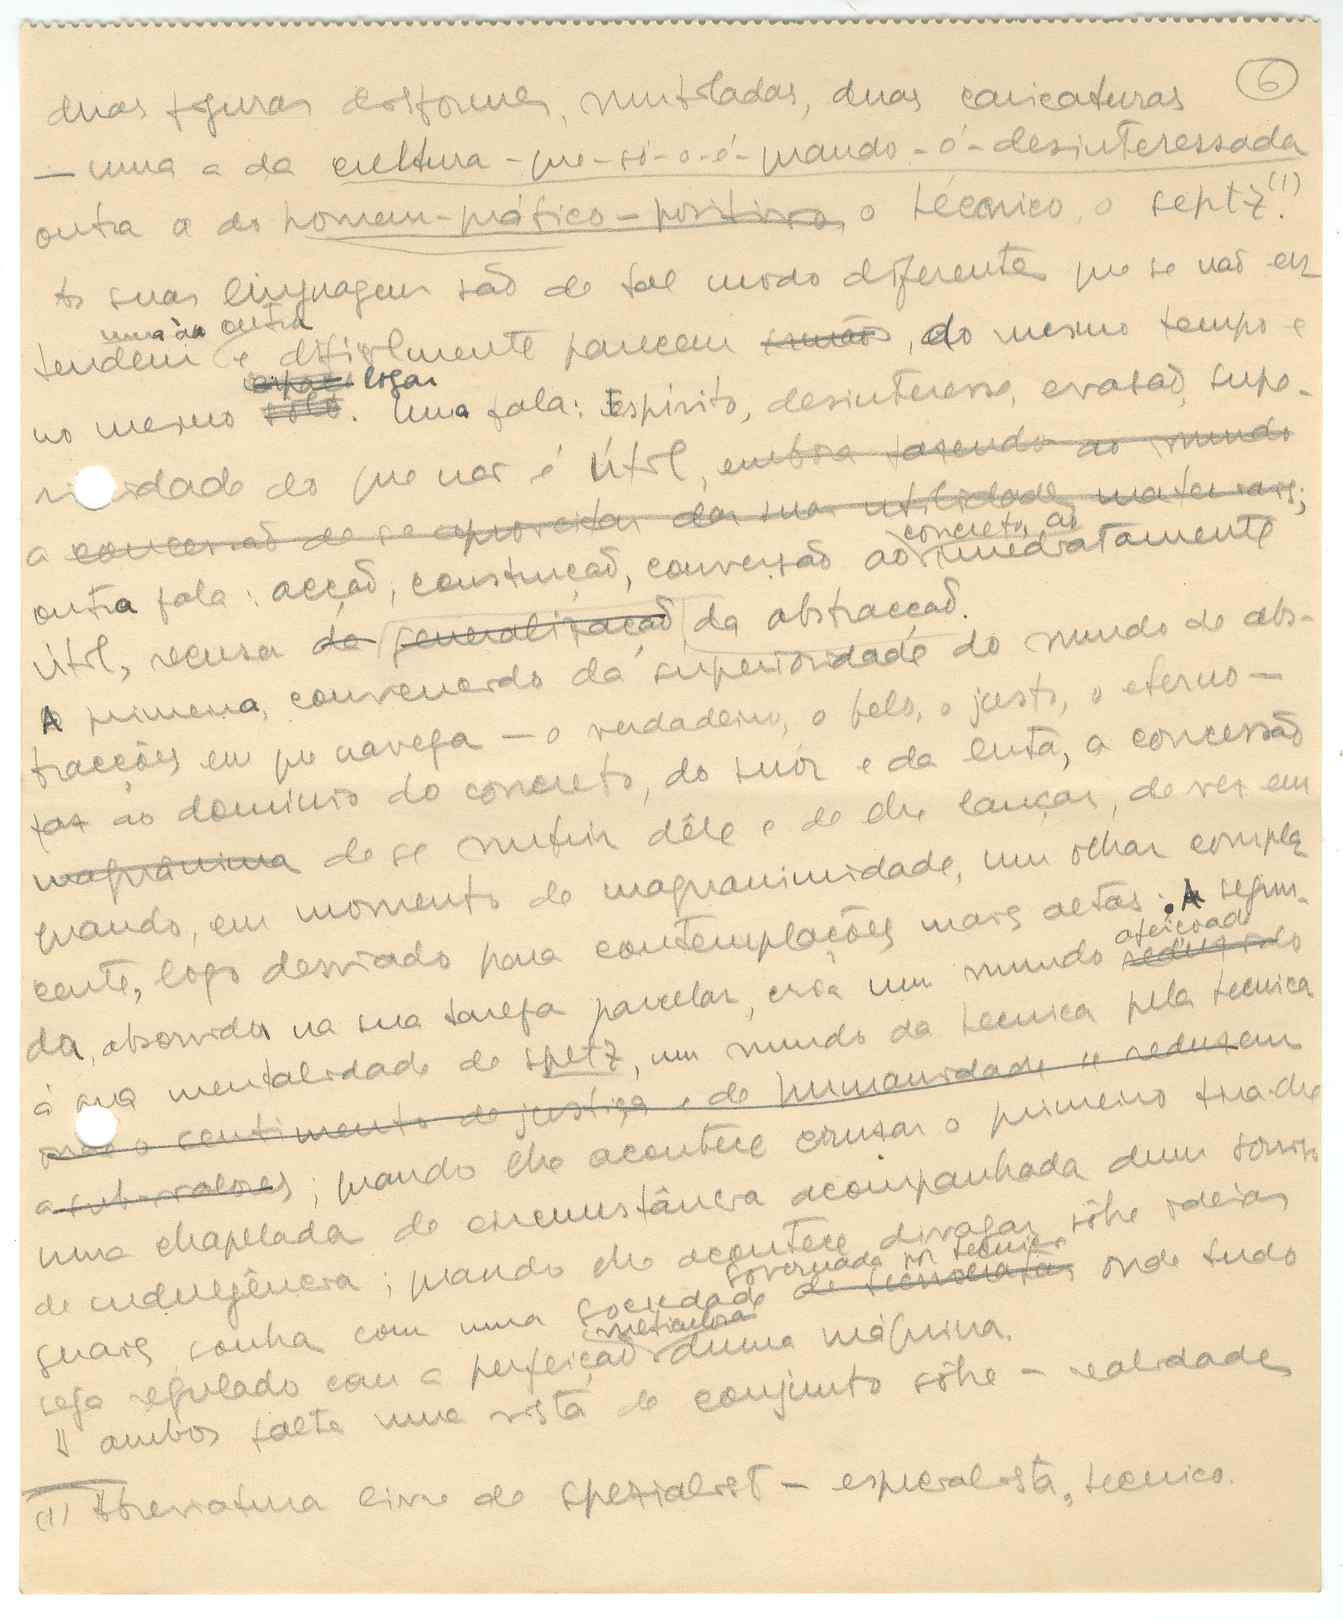 6
duas figuras disformes, mutiladas, duas caricaturas
— uma a da cultura-que-só-o-é-quando-é-desinteressada
outra a do homem-prático-positivo, o técnico, o septz.(1)
As suas linguagens são de tal modo diferentes que se não en
uma à outra
tendem e dificilmente parecem , do mesmo tempo e
espaço logar
no mesmo solo. Uma fala: Espírito, desinteresse, evasão, supe-
rioridade do que não é Útil, embora fazendo ao mundo
a concessão de se aproveitar das suas utilidades materiais;
concreto, ao
outra fala: acção, construção, conversão ao imediatamente
Útil, recusa da generalização da abstracção.
A primeira, convencido da superioridade do mundo de abs-
tracções em que navega — o verdadeiro, o belo, o justo, o eterno —
faz ao domínio do concreto, do suor e da luta, a concessão
magnânima de se nutrir dêle e de lhe lançar, de vez em
quando, em momento de magnanimidade, um olhar compla
cente, logo desviado para contemplações mais altas. A segun-
afeiçoado
da, absorvida na sua tarefa parcelar, cria um mundo reduzido
à sua mentalidade de spetz, um mundo da tecnica pela tecnica
onde o sentimento de justiça e de humanidade se reduzem
a sub-valores; quando lhe acontece cruzar o primeiro tira-lhe
uma chapelada de circunstância acompanhada dum sorriso
de indulgência; quando lhe acontece divagar sôbre ideias
governada por tecnicos
gerais, sonha com uma sociedade de tecnocratas onde tudo
meticulosa
seja regulado com a perfeição duma máquina.
A ambos falta uma vista de conjunto sôbre a realidade
(1) Abreviatura livre de spezialist — especialista, tecnico.